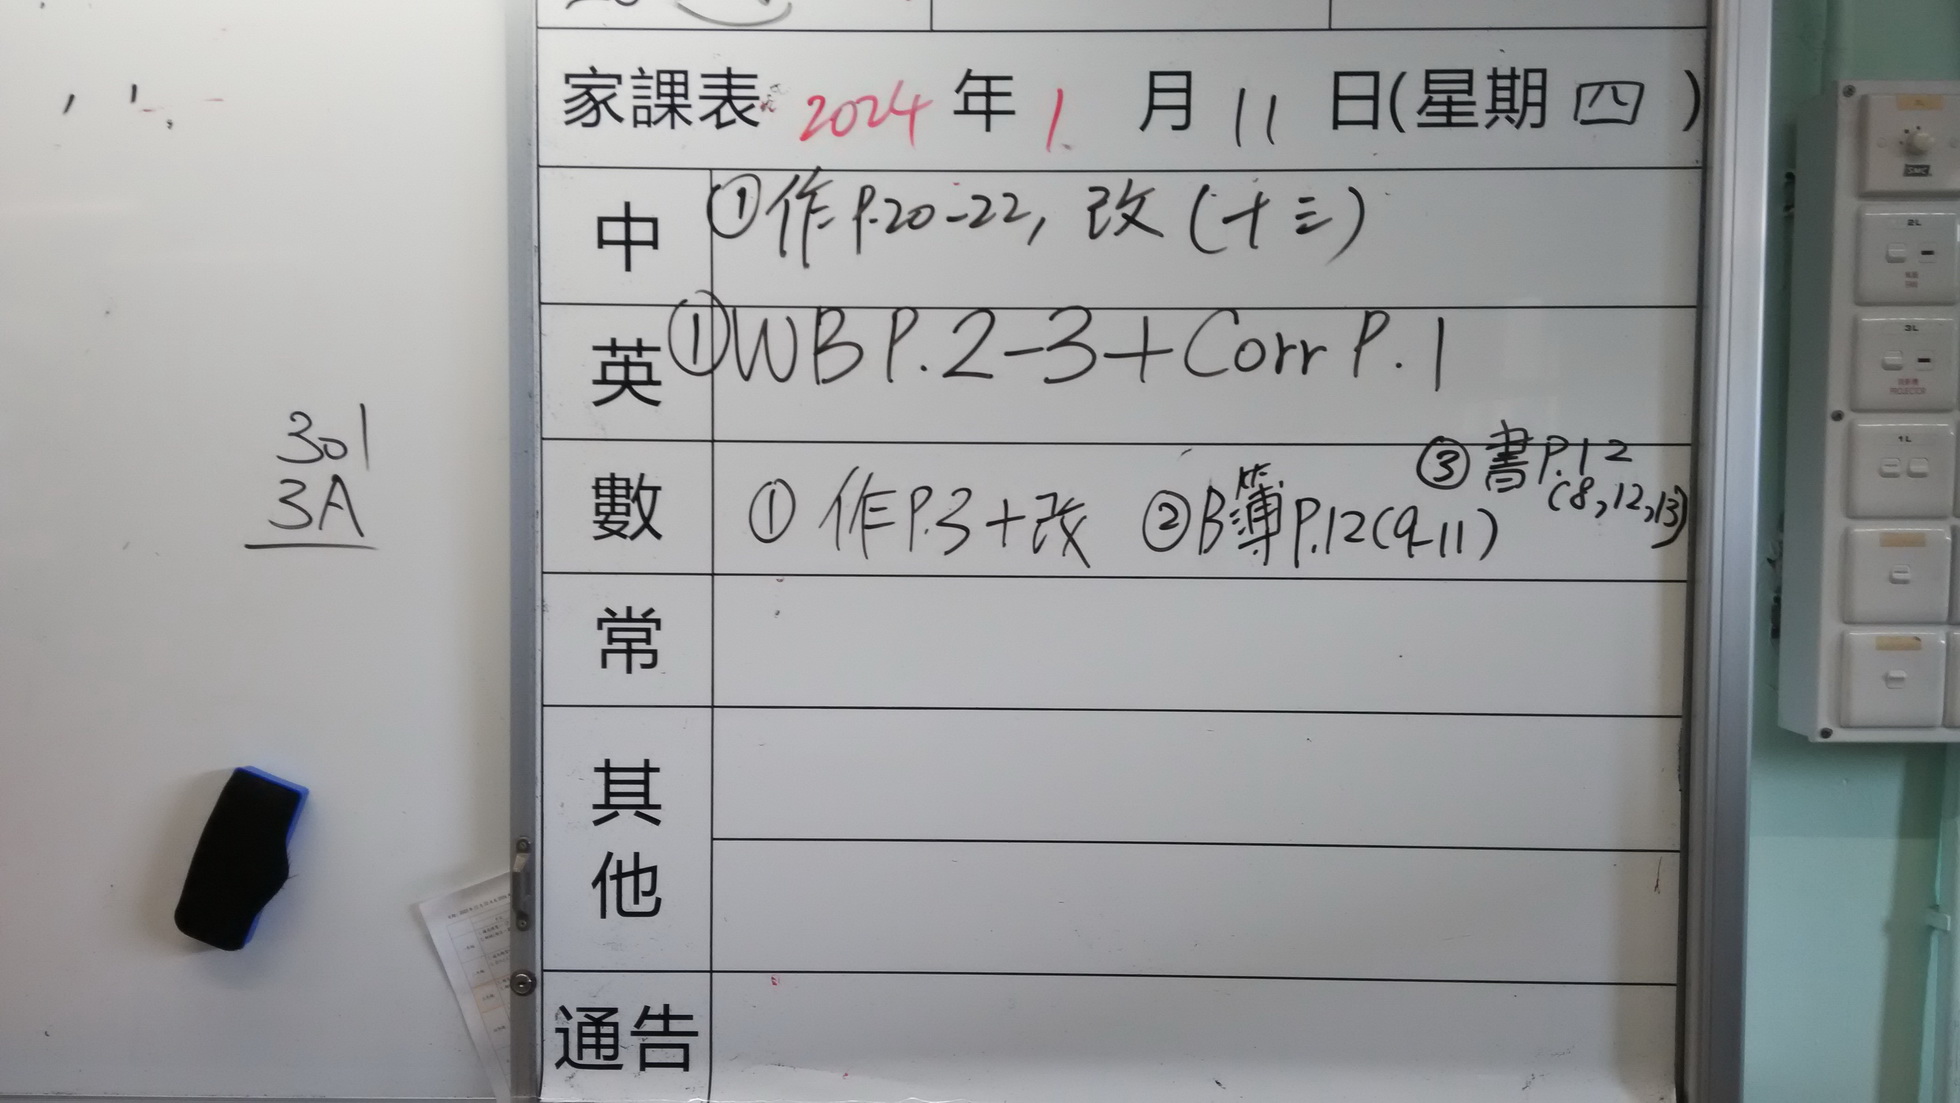 家課表 2024 年 1 月 11 日(星期 四 )
中 ①作P.20-22, 改(十三)
英 ①WB P.2-3+Corr P.1
數 ① 作P.3+改 ②B簿P.12(9-11) ③書P.12 (8,12,13)
常
其他
通告
301
3A
2L
3L
PROJECTOR
1L